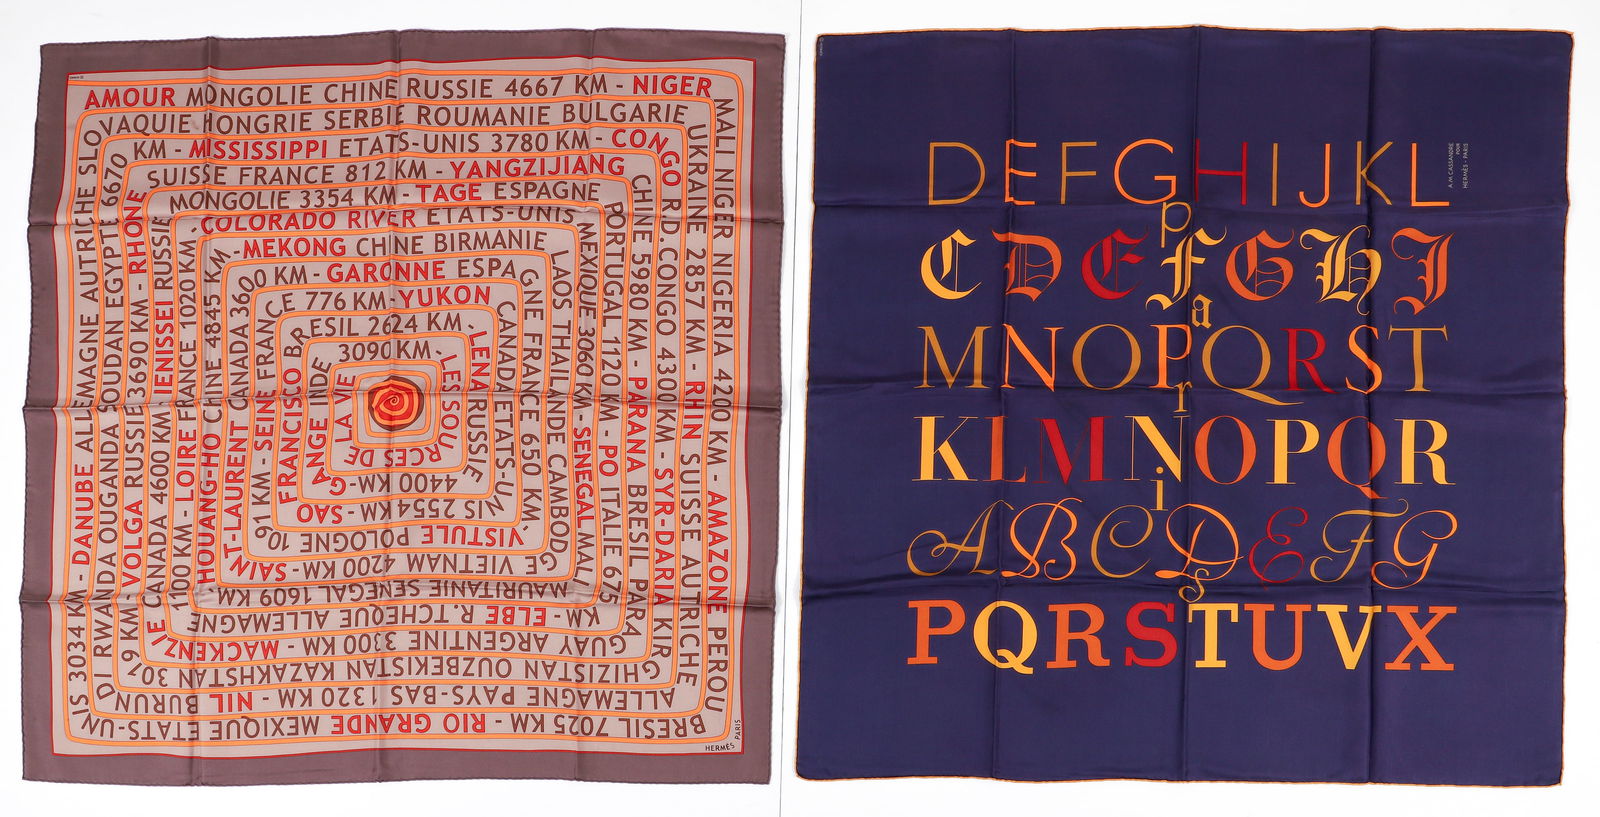 AMOUR MONGOLIE CHINE RUSSIE 4667 KM - NIGER
MALI NIGER NIGERIA 4200 KM - AMAZONE PEROU
BRESIL 7025 KM - RIO GRANDE MEXIQUE ETATS-UNIS 3034 KM - DANUBE ALLEMAGNE AUTRICHE SLOVAQUIE HONGRIE SERBIE ROUMANIE BULGARIE
UKRAINE 2857 KM - RHIN SUISSE AUTRICHE
ALLEMAGNE PAYS-BAS 1320 KM - NIL BURUNDI RWANDA OUGANDA SOUDAN EGYPTE 6670 KM - MISSISSIPPI ETATS-UNIS 3780 KM - CONGO RD.CONGO 4300 KM - SYR-DARIA KIRGHIZISTAN OUZBEKISTAN KAZAKHSTAN 3079 KM - VOLGA RUSSIE 3690 KM - RHONE
SUISSE FRANCE 812 KM - YANGZIJIANG
CHINE 5980 KM - PARANA BRESIL PARAGUAY ARGENTINE 3300 KM - MACKENZIE CANADA 4600 KM - IENISSEI RUSSIE
MONGOLIE 3354 KM - TAGE ESPAGNE
PORTUGAL 1120 KM - PO ITALIE 675 KM - ELBE R.TCHEQUE ALLEMAGNE
1100 KM - LOIRE FRANCE 1020 KM - COLORADO RIVER ETATS-UNIS
MEXIQUE 3060 KM - SENEGAL MALI
MAURITANIE SENEGAL 1609 KM -
HOUANG-HO CHINE 4845 KM - MEKONG CHINE BIRMANIE
LAOS THAILANDE CAMBODGE VIETNAM 4200 KM - SAINT-LAURENT CANADA 3600 KM - GARONNE ESPAGNE FRANCE 650 KM - VISTULE POLOGNE 1091 KM - SEINE FRANCE 776 KM - YUKON
CANADA ETATS-UNIS 2554 KM - SAO FRANCISCO BRESIL 2624 KM -
LENA RUSSIE
4400 KM - GANGE INDE 3090 KM -
LES SOURCES DE LA VIE
HERMÈS PARIS
DEFGHIJKL
A.M. CASSANDRE
POUR
HERMÈS - PARIS
p
CDEFGHI
a
MNOPQRST
r
KLMNOPQR
i
ABCDEFG
s
PQRSTUVX